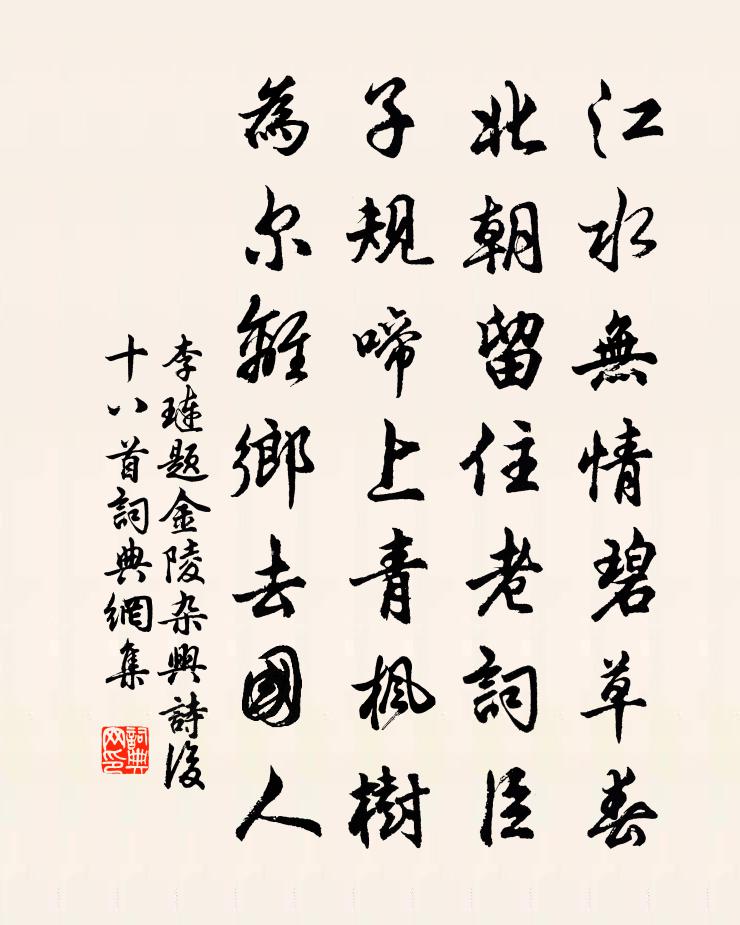 江水無情碧草春
北朝留住老詞臣
子規啼上青楓樹
為尔離鄉去國人
李璉题金陵杂興詩後
十八首詞典網集
詞典网印